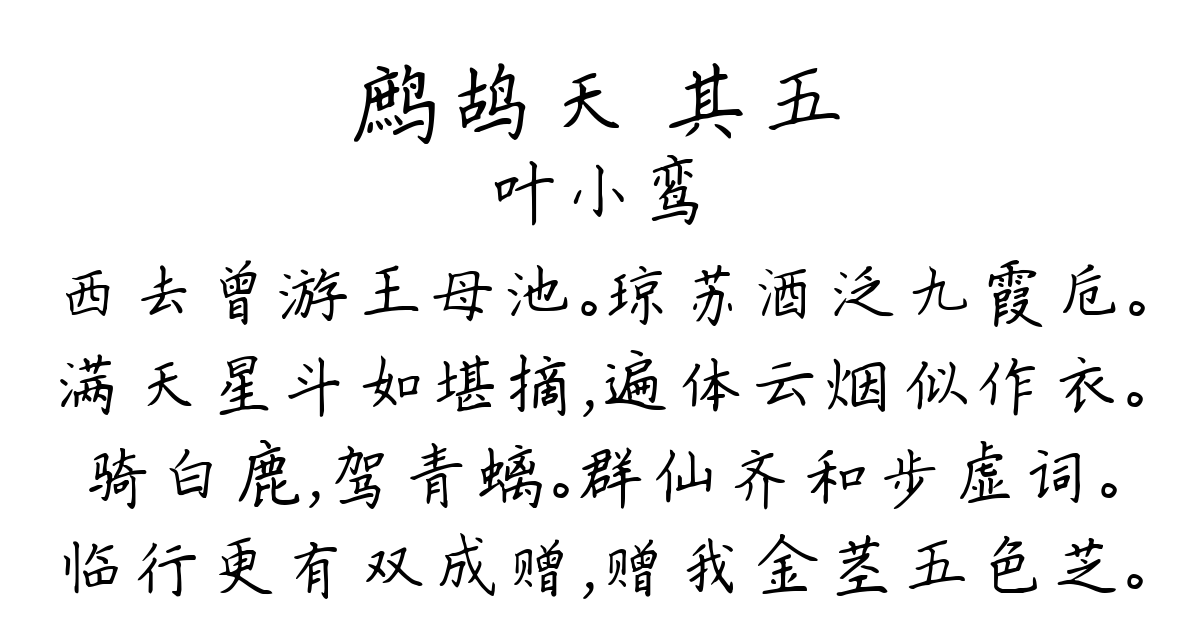 鹧鸪天 其五
叶小鸾
西去曾游王母池。琼苏酒泛九霞卮。
满天星斗如堪摘,遍体云烟似作衣。
骑白鹿,驾青螭。群仙齐和步虚词。
临行更有双成赠,赠我金茎五色芝。